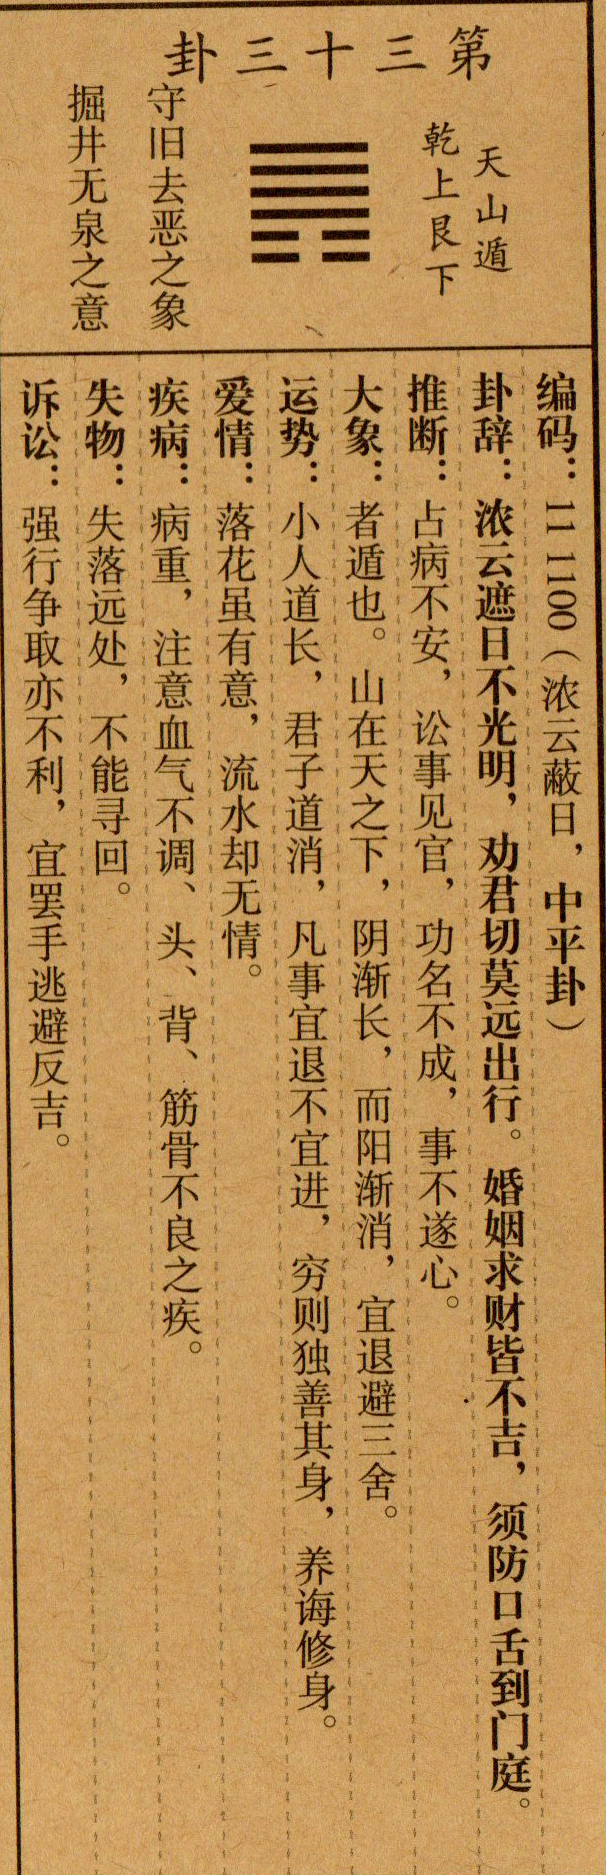 第三十三卦
天山遁
乾上艮下
守旧去恶之象
掘井无泉之意
编码：11 1100（浓云蔽日，中平卦）
卦辞：浓云遮日不光明，劝君切莫远出行。婚姻求财皆不吉，须防口舌到门庭。
推断：占病不安，讼事见官，功名不成，事不遂心。
大象：者遁也。山在天之下，阴渐长，而阳渐消，宜退避三舍。
运势：小人道长，君子道消，凡事宜退不宜进，穷则独善其身，养诲修身。
爱情：落花虽有意，流水却无情。
疾病：病重，注意血气不调、头、背、筋骨不良之疾。
失物：失落远处，不能寻回。
诉讼：强行争取亦不利，宜罢手逃避反吉。